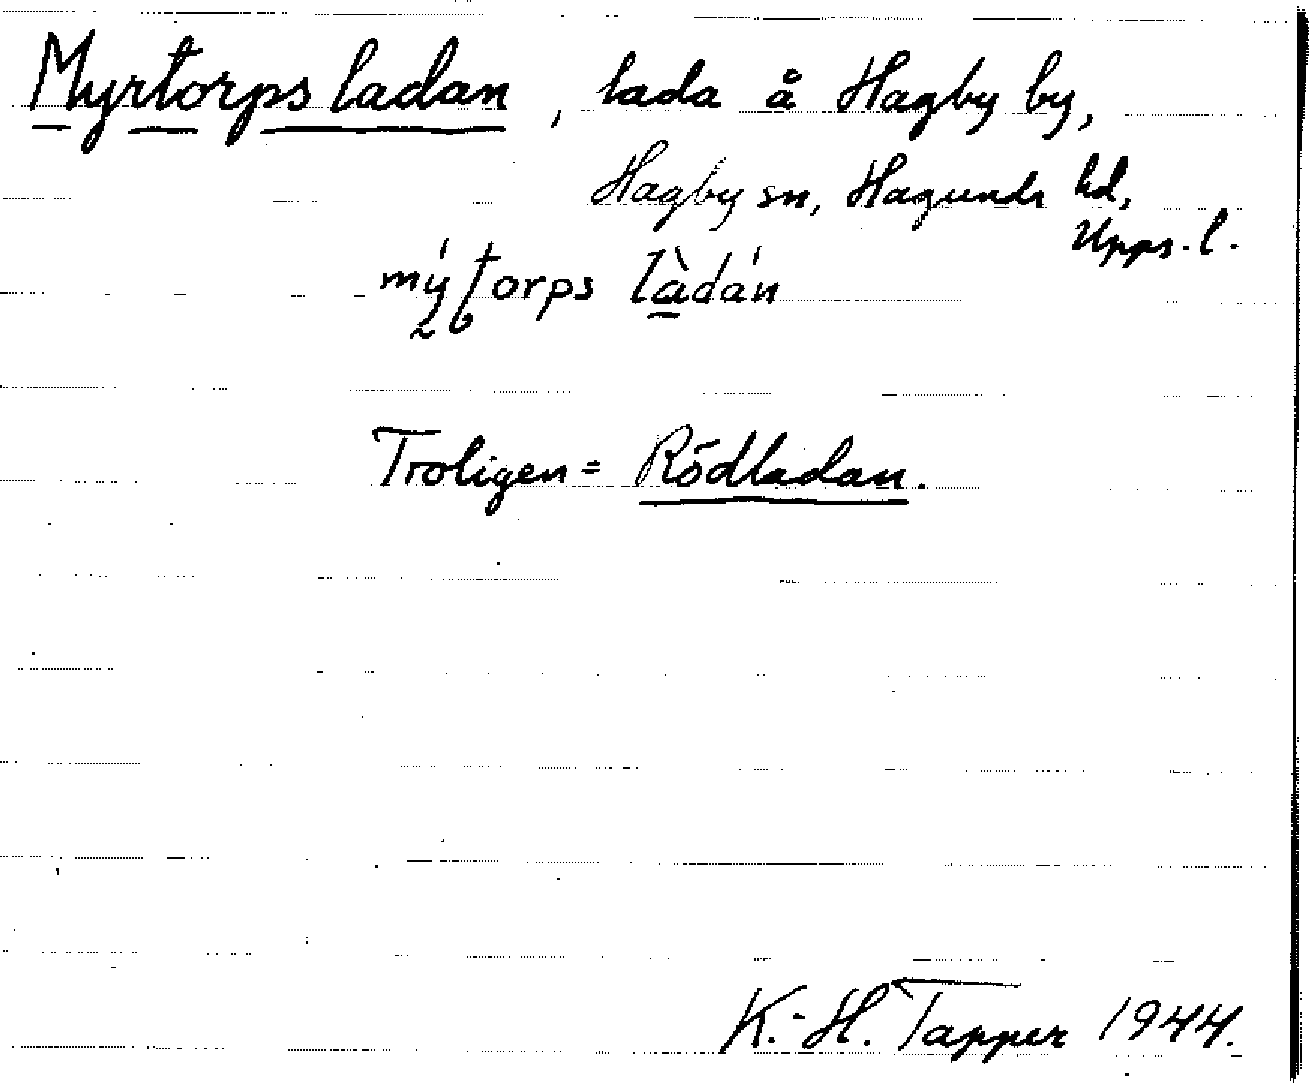 Myrtorpsladan, lada å Hagby by,
Hagby sn, Hagunda hd,
Upps. l.
mýtorps làdán
Troligen = Rödladan.
K.-H. Tapper 1944.